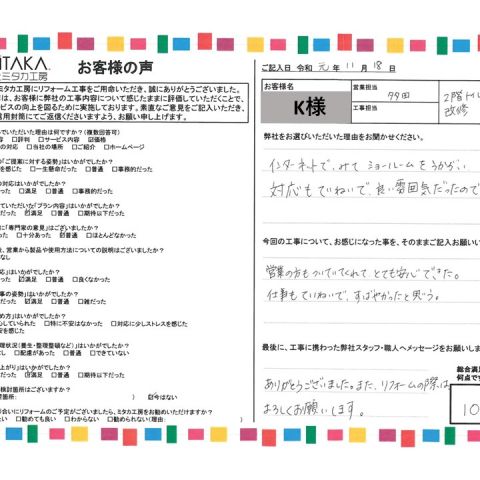 ITAKA
ミタカ工房
お客様の声
ミタカ工房にリフォーム工事をご用命いただき、誠にありがとうございました。
は、お客様に弊社の工事内容について感じたままに評価していただくことで、
ービスの向上を図るために実施しております。素直なご意見をご記入いただき、
信用封筒にてご返信くださいますよう、お願い申し上げます。
んでいただいた理由は何ですか？（複数回答可）
容 □評判 □サービス内容 ☑価格
の対応 □当社の場所 □ご紹介 □ホームページ
の「ご提案に対する姿勢」はいかがでしたか？
を感じた □一生懸命だった □普通 □事務的だった
の対応はいかがでしたか？
だった ☑満足 □普通 □事務的だった
ていただいた「プラン内容」はいかがでしたか？
だった ☑満足 □普通 □期待以下だった
に「専門家の意見」はございましたか？
った □十分あった ☑あった □ほとんどなかった
後、営業から製品や使用方法についての説明はございましたか？
なし
応」はいかがでしたか？
った ☑満足 □普通 □良くなかった
事の姿勢」はいかがでしたか？
だった ☑満足 □普通 □雑だった
め方」はいかがでしたか？
心していられた □特に不安はなかった □対応に少しストレスを感じた
安を感じた
理状況（養生・整理整頓など）」はいかがでしたか？
し □配慮があった □できていない
上がり」はいかがでしたか？
った ☑満足 □普通 □期待以下だった
検討箇所はございますか？
） ☑今はない
合いにリフォームのご予定がございましたら、ミタカ工房をお勧めいただけますか？
たい □勧めても良い □わからない □勧められない(理由: )
ご記入日 令和 元 年 11 月 18 日
お客様名
K様
営業担当
工事担当
2階トイレ
改修
弊社をお選びいただいた理由をお聞かせください。
インターネットで、みて ショールームをうかがい
対応もていねいで、良い雰囲気だったので
今回の工事について、お感じになった事を、そのままご記入お願い
営業の方もついていてくれて とても安心できた。
仕事もていねいで、すばやかったと思う。
最後に、工事に携わった弊社スタッフ・職人へメッセージをお願いしま
ありがとうございました。また、リフォームの際は
よろしくお願いします。
総合満足
何点です
10